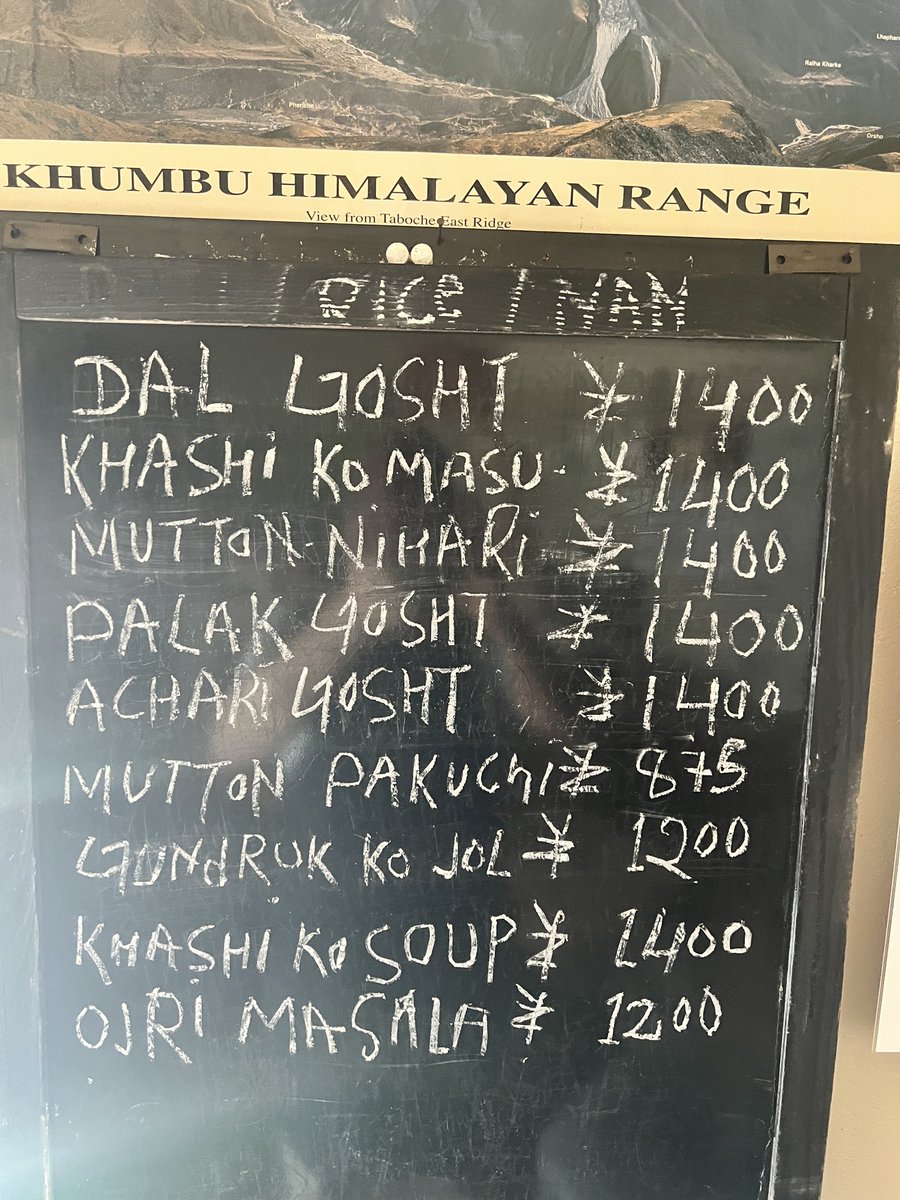 Dingboche
Lhaphar
Ralha Kharka
Pheriche
Orsho
KHUMBU HIMALAYAN RANGE
View from Taboche East Ridge
/ RICE / NAN
DAL GOSHT ¥ 1400
KHASHi KO MASU ¥ 1400
MUTTON NiHARi ¥ 1400
PALAK GOSHT ¥ 1400
ACHARi GOSHT ¥ 1400
MUTTON PAKUChi ¥ 875
GUNdRUK KO JOL ¥ 1200
KHASHI KO SOUP ¥ 1400
OJRI MASALA ¥ 1200